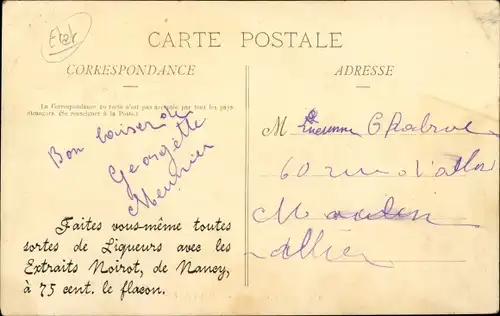 Eter
CARTE POSTALE
CORRESPONDANCE
ADRESSE
La Correspondance au recto n'est pas acceptée par tout les pays
étrangers. (Se renseigner à la Poste.)
Bon baiser de
Georgette
Meunier
M
Chabrol
60 rue d'Allier
Moulin
Allier
Faites vous-même toutes
sortes de Liqueurs avec les
Extraits Noirot, de Nancy,
à 75 cent. le flacon.